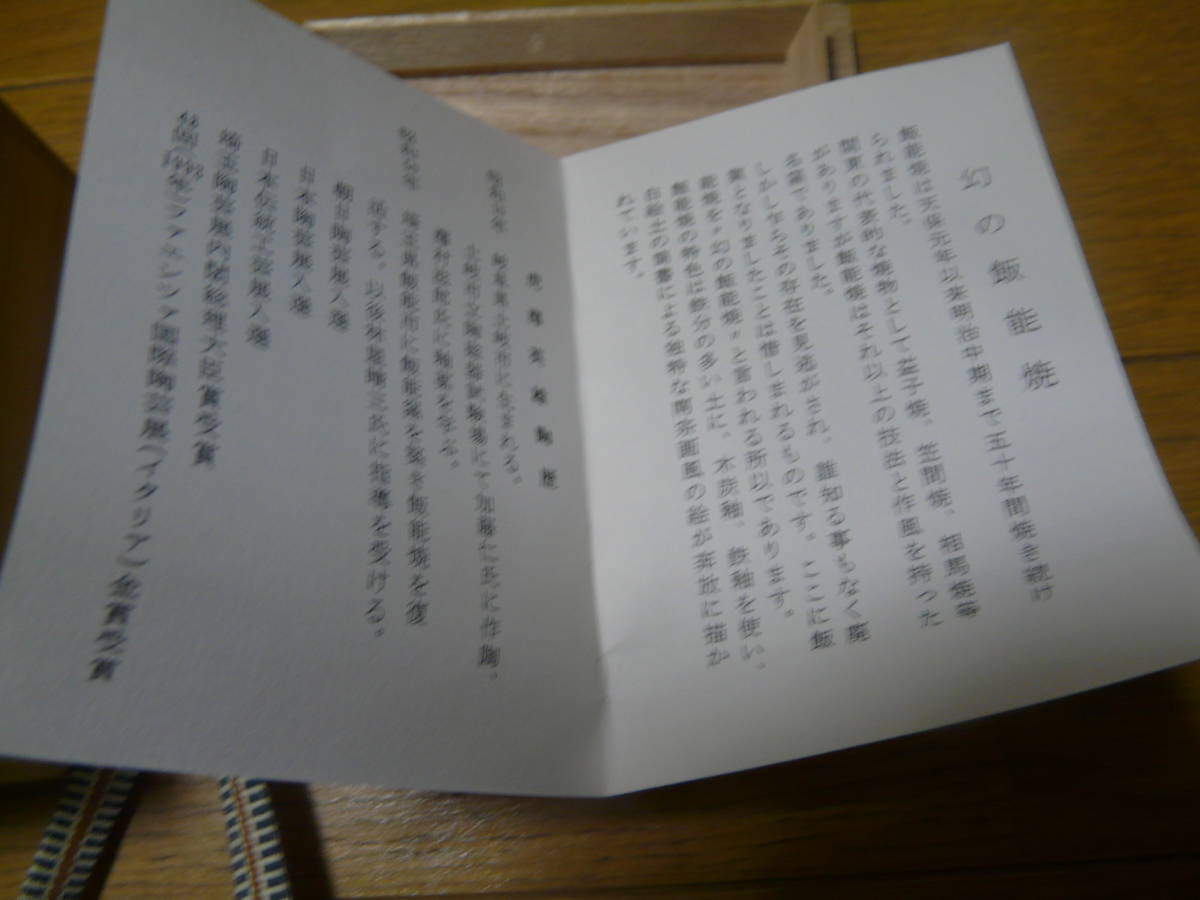 幻の飯能焼
飯能焼は天保元年以来明治中期まで五十年間焼き続け
られました。
関東の代表的な焼物として益子焼、笠間焼、相馬焼等
がありますが飯能焼はそれ以上の技法と作風を持った
名窯でありました。
しかしながらその存在を見逃がされ、誰知る事もなく廃
窯となりましたことは惜しまれるものです。ここに飯
能焼を〝幻の飯能焼〟と言われる所以であります。
飯能焼の特色は鉄分の多い土に、木灰釉、鉄釉を使い、
白絵土の筆書による独特な南宗画風の絵が奔放に描か
れています。
岐阜県土岐市に生まれる。
土岐市立陶磁器試験場にて加藤仁氏に作陶、
氏に釉薬を学ぶ。
埼玉県飯能市に飯能窯を築き飯能焼を復
活する。以後
氏に指導を受ける。
朝日陶芸展入選
日本陶芸展入選
日本伝統工芸展入選
埼玉陶芸展内閣総理大臣賞受賞
48回(1993年)ファエンツア国際陶芸展(イタリア)金賞受賞